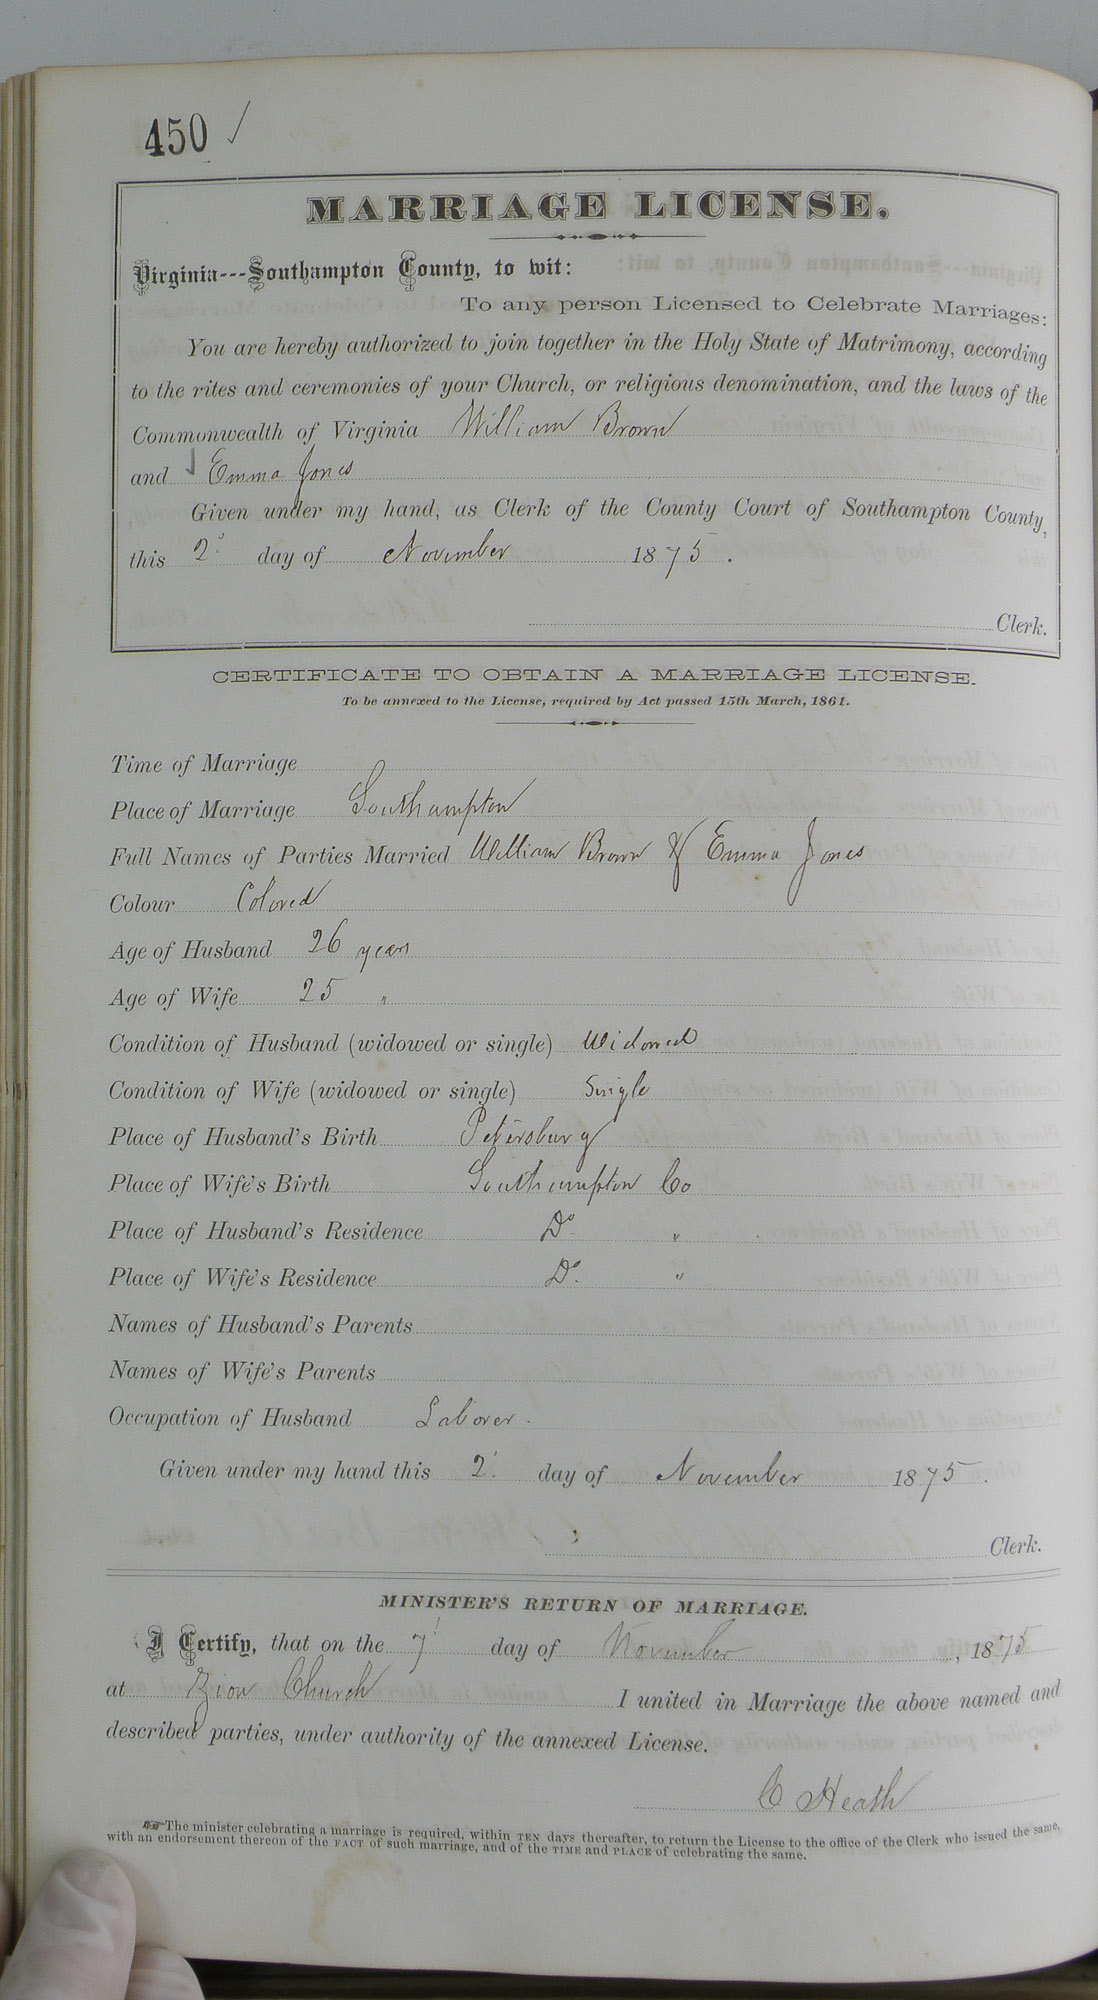 450 ✓
MARRIAGE LICENSE.
Virginia---Southampton County, to wit:
To any person Licensed to Celebrate Marriages:
You are hereby authorized to join together in the Holy State of Matrimony, according
to the rites and ceremonies of your Church, or religious denomination, and the laws of the
Commonwealth of Virginia William Brown
and Emma Jones
Given under my hand, as Clerk of the County Court of Southampton County,
this 2 day of November 1875.
Clerk.
CERTIFICATE TO OBTAIN A MARRIAGE LICENSE.
To be annexed to the License, required by Act passed 15th March, 1861.
Time of Marriage
Place of Marriage Southampton
Full Names of Parties Married William Brown & Emma Jones
Colour Colored
Age of Husband 26 years
Age of Wife 25 "
Condition of Husband (widowed or single) Widowed
Condition of Wife (widowed or single) Single
Place of Husband's Birth Petersburg
Place of Wife's Birth Southampton Co
Place of Husband's Residence Do "
Place of Wife's Residence Do "
Names of Husband's Parents
Names of Wife's Parents
Occupation of Husband Laborer.
Given under my hand this 2 day of November 1875.
Clerk.
MINISTER'S RETURN OF MARRIAGE.
I Certify, that on the 7 day of November, 1875
at Zion Church I united in Marriage the above named and
described parties, under authority of the annexed License.
C Heath
☞The minister celebrating a marriage is required, within TEN days thereafter, to return the License to the office of the Clerk who issued the same,
with an endorsement thereon of the FACT of such marriage, and of the TIME and PLACE of celebrating the same.